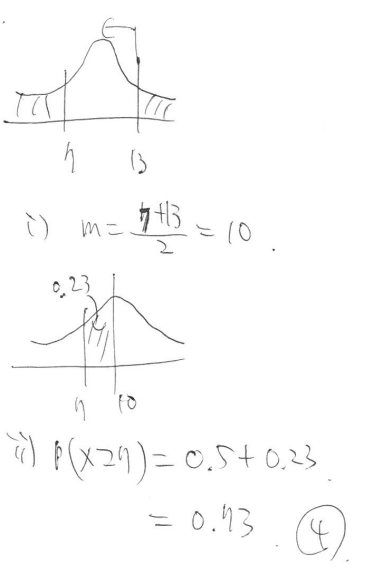 7 13
i) m = (7+13)/2 = 10.
0.23
7 10
ii) P(X≥7) = 0.5 + 0.23
= 0.73. ④